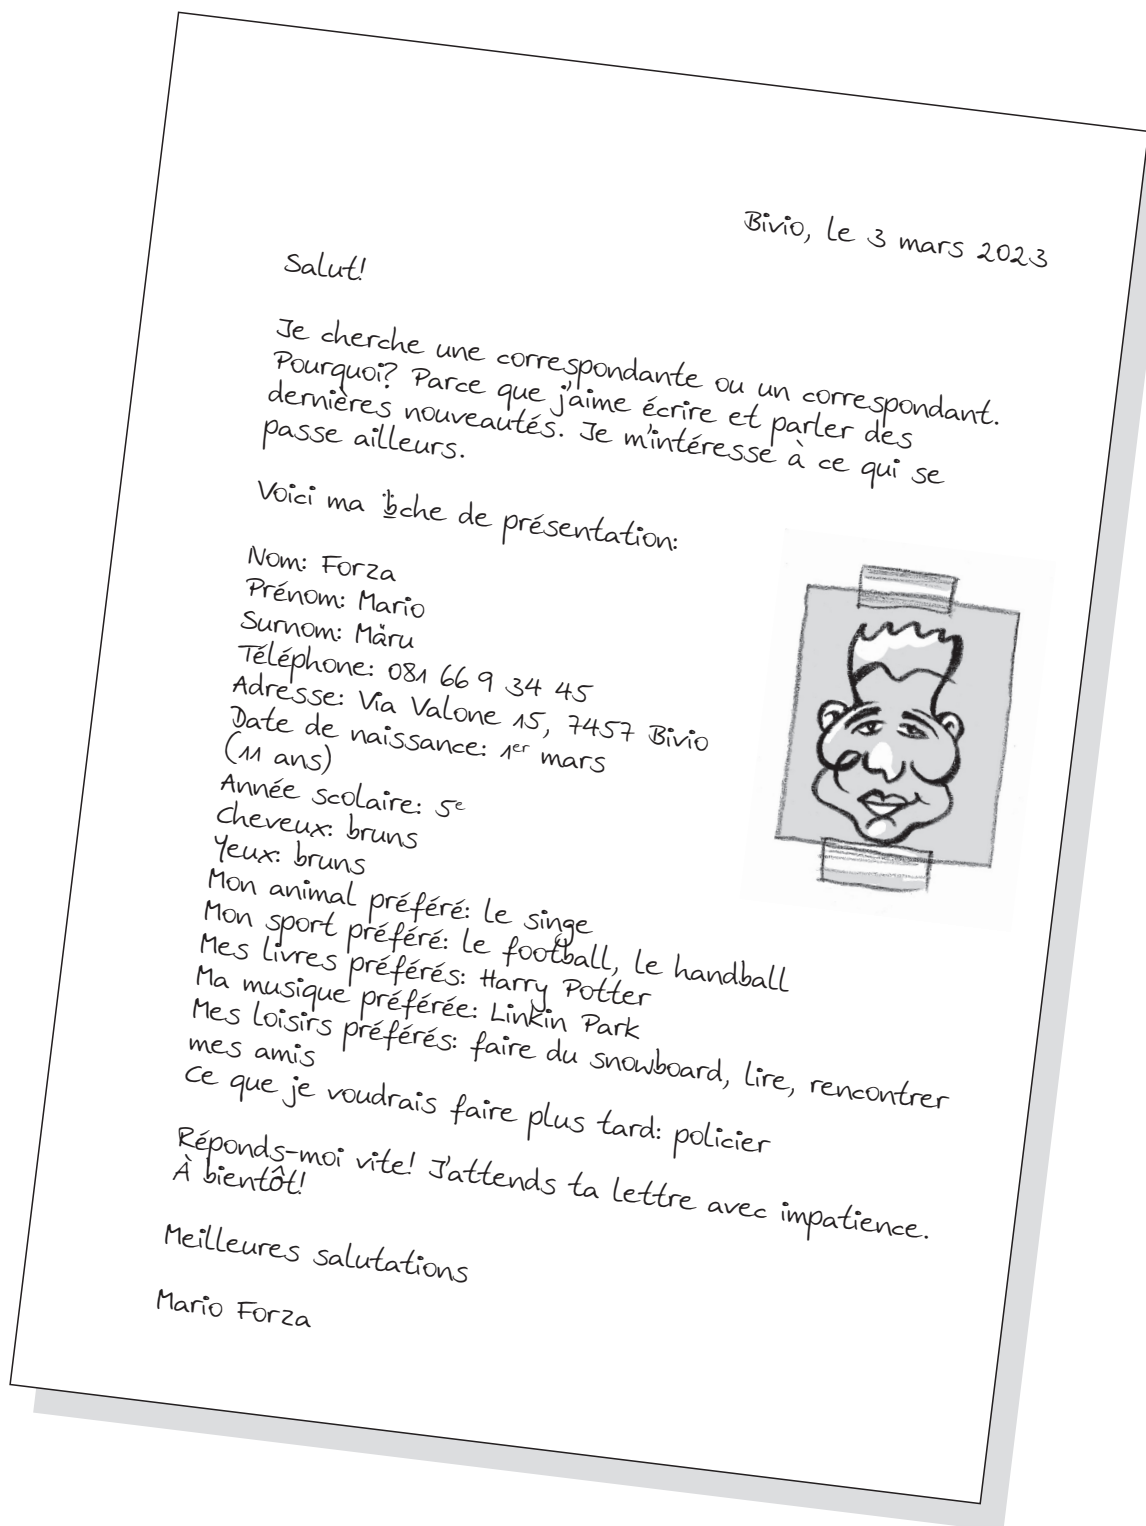 Bivio, le 3 mars 2023
Salut!
Je cherche une correspondante ou un correspondant.
Pourquoi? Parce que j'aime écrire et parler des
dernières nouveautés. Je m'intéresse à ce qui se
passe ailleurs.
Voici ma che de présentation:
Nom: Forza
Prénom: Mario
Surnom: Märu
Téléphone: 081 66 9 34 45
Adresse: Via Valone 15, 7457 Bivio
Date de naissance: 1er mars
(11 ans)
Année scolaire: 5e
Cheveux: bruns
Yeux: bruns
Mon animal préféré: le singe
Mon sport préféré: le football, le handball
Mes livres préférés: Harry Potter
Ma musique préférée: Linkin Park
Mes loisirs préférés: faire du snowboard, lire, rencontrer
mes amis
Ce que je voudrais faire plus tard: policier
Réponds-moi vite! J'attends ta lettre avec impatience.
À bientôt!
Meilleures salutations
Mario Forza